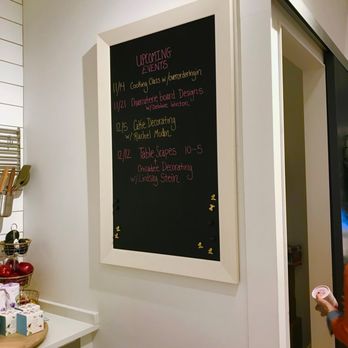 UPCOMING
EVENTS
11/14 Cooking Class w/overorderingin
11/21 Charcuterie board Designs
w/Debbie Weston
12/5 Cake Decorating
w/ Rachel
12/12 Table Scapes 10-5
+
Decorating
w/ Lindsay